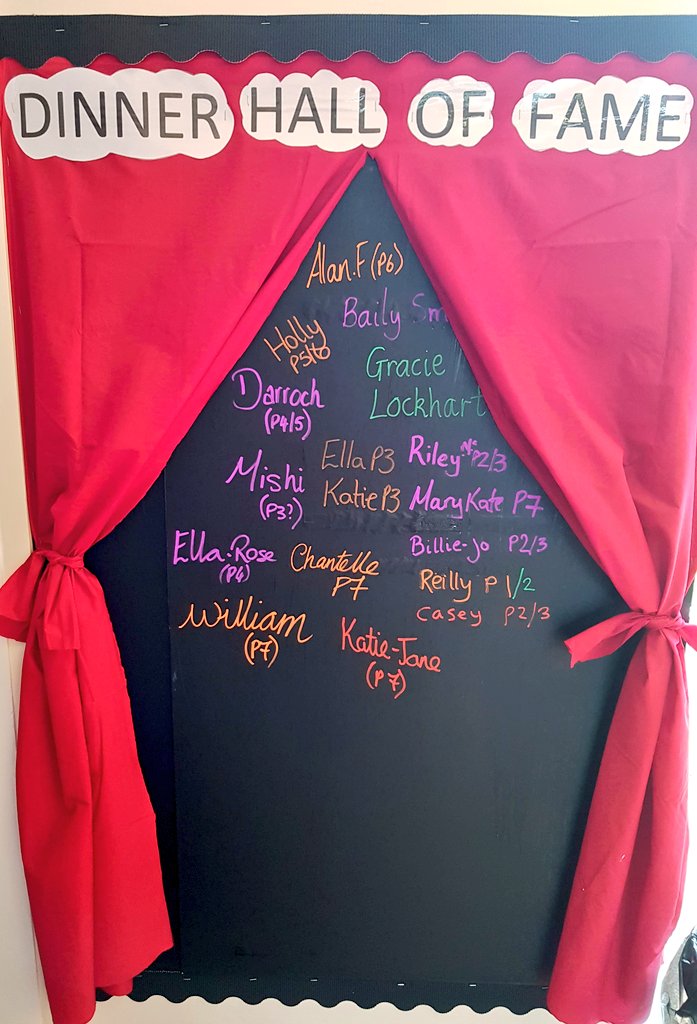 DINNER HALL OF FAME
Alan.F (P6)
Baily Sm
Holly
P5/6
Gracie
Lockhart
Darroch
(P4/5)
Ella P3
Riley P2/3
Mishi
(P3?)
Katie P3
MaryKate P7
Billie-Jo P2/3
Ella-Rose
(P4)
Chantelle
P7
Reilly P 1/2
Casey P2/3
William
(P7)
Katie-Jane
(P7)